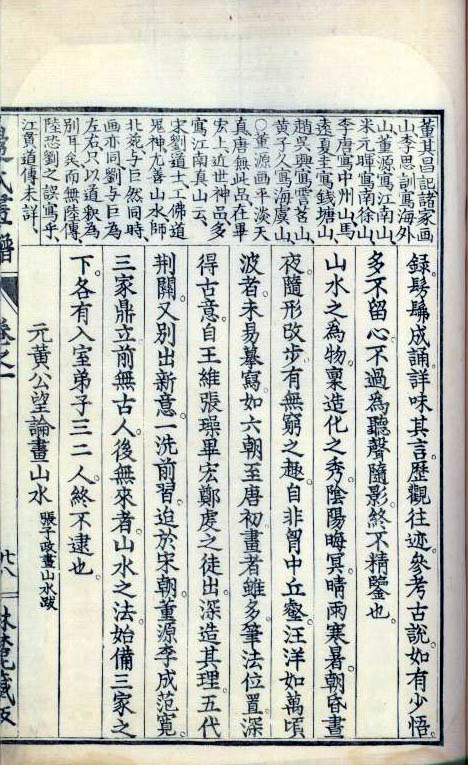 董其昌記諸家画
山李思訓寫海外
山董源寫江南山
米元暉寫南徐山
李唐寫中州山馬
遠夏圭寫錢塘山
趙吳興寫雲苕山
黃子久寫海虞山
〇董源画平淡天
真唐無此品在畢
宏上近世神品多
寫江南真山云、
宋劉道士工佛道
鬼神尤善山水師
北苑与巨然同時、
画亦同劉与巨為
左右只以道釈為
別耳矣而無陸傳、
陸恐劉之誤寫乎、
江貫道傳未詳、
録髣髴成誦詳味其言歴觀往迹參考古説如有少悟
多不留心不過為聽聲隨影終不精鑒也
山水之為物稟造化之秀陰陽晦冥晴雨寒暑朝昏晝
夜隨形改步有無窮之趣自非胷中丘壑汪洋如萬頃
波者未易摹寫如六朝至唐初畫者雖多筆法位置深
得古意自王維張璪畢宏鄭虔之徒出深造其理五代
荆關又別出新意一洗前習迨於宋朝董源李成范寬
三家鼎立前無古人後無來者山水之法始備三家之
下各有入室弟子三二人終不逮也
元黄公望論畫山水 張子政畫山水跋
卷之一
廿八